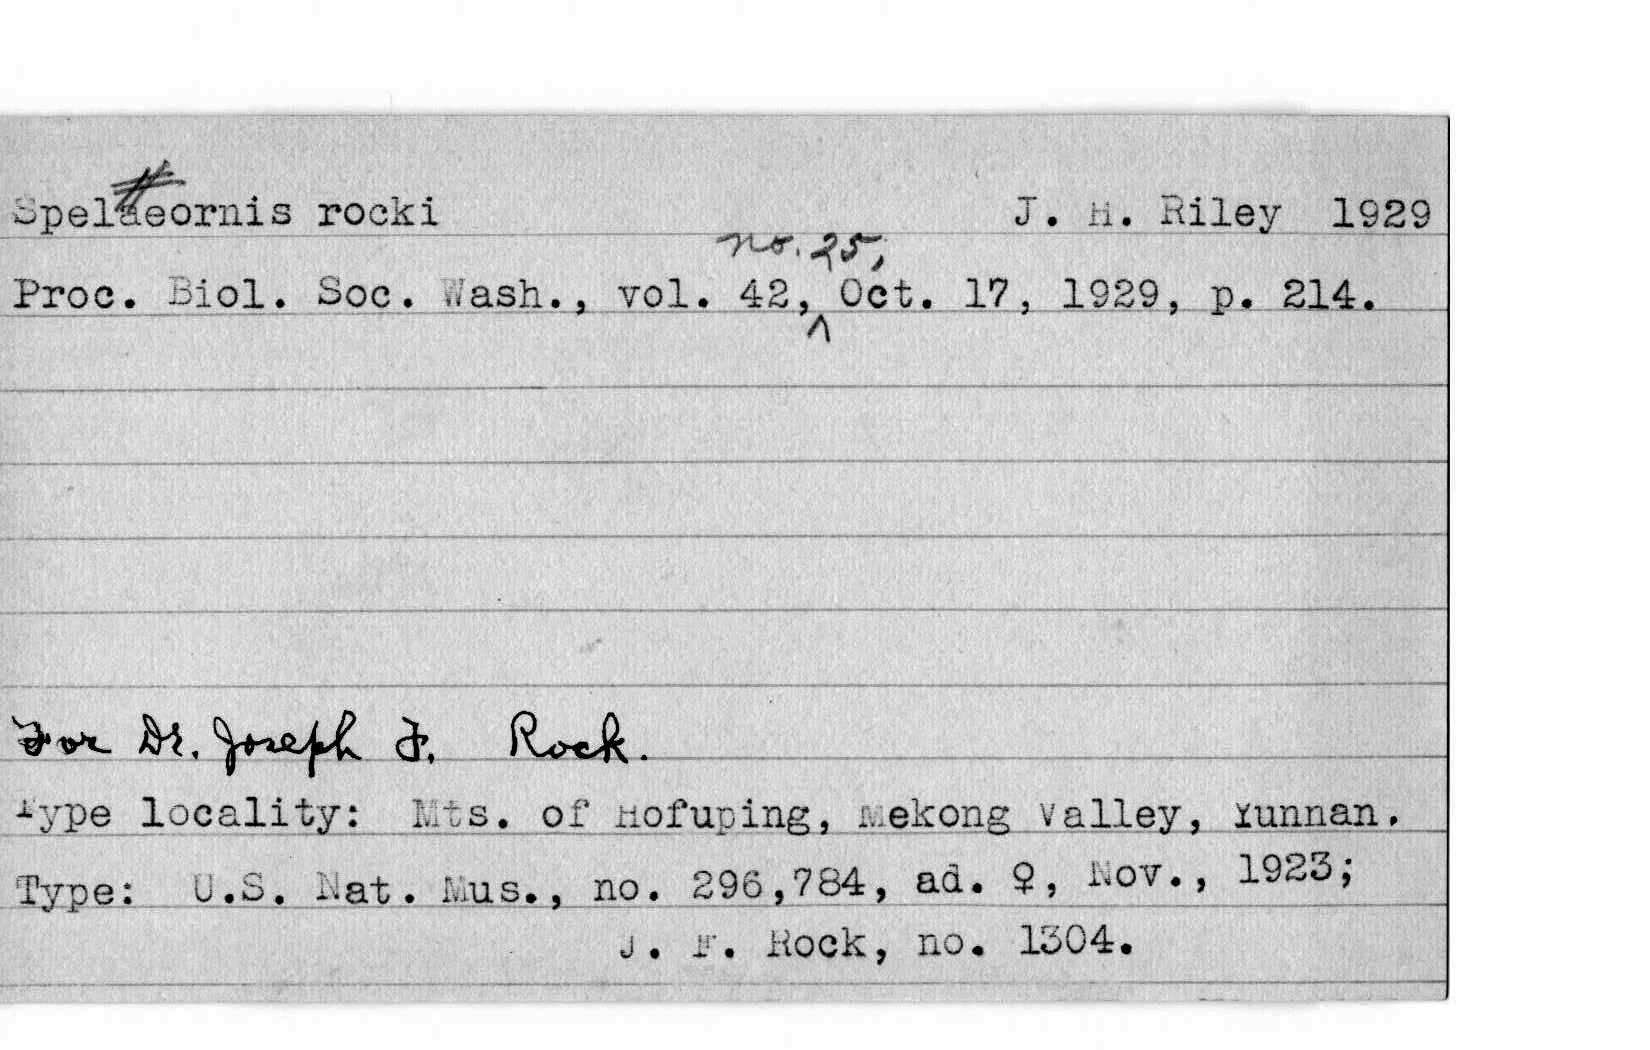 Spelaeornis rocki J. H. Riley 1929
no. 25,
Proc. Biol. Soc. Wash., vol. 42, ^ Oct. 17, 1929, p. 214.
For Dr. Joseph F. Rock.
Type locality: Mts. of Hofuping, Mekong Valley, Yunnan.
Type: U.S. Nat. Mus., no. 296,784, ad. ♀, Nov., 1923;
J. F. Rock, no. 1304.